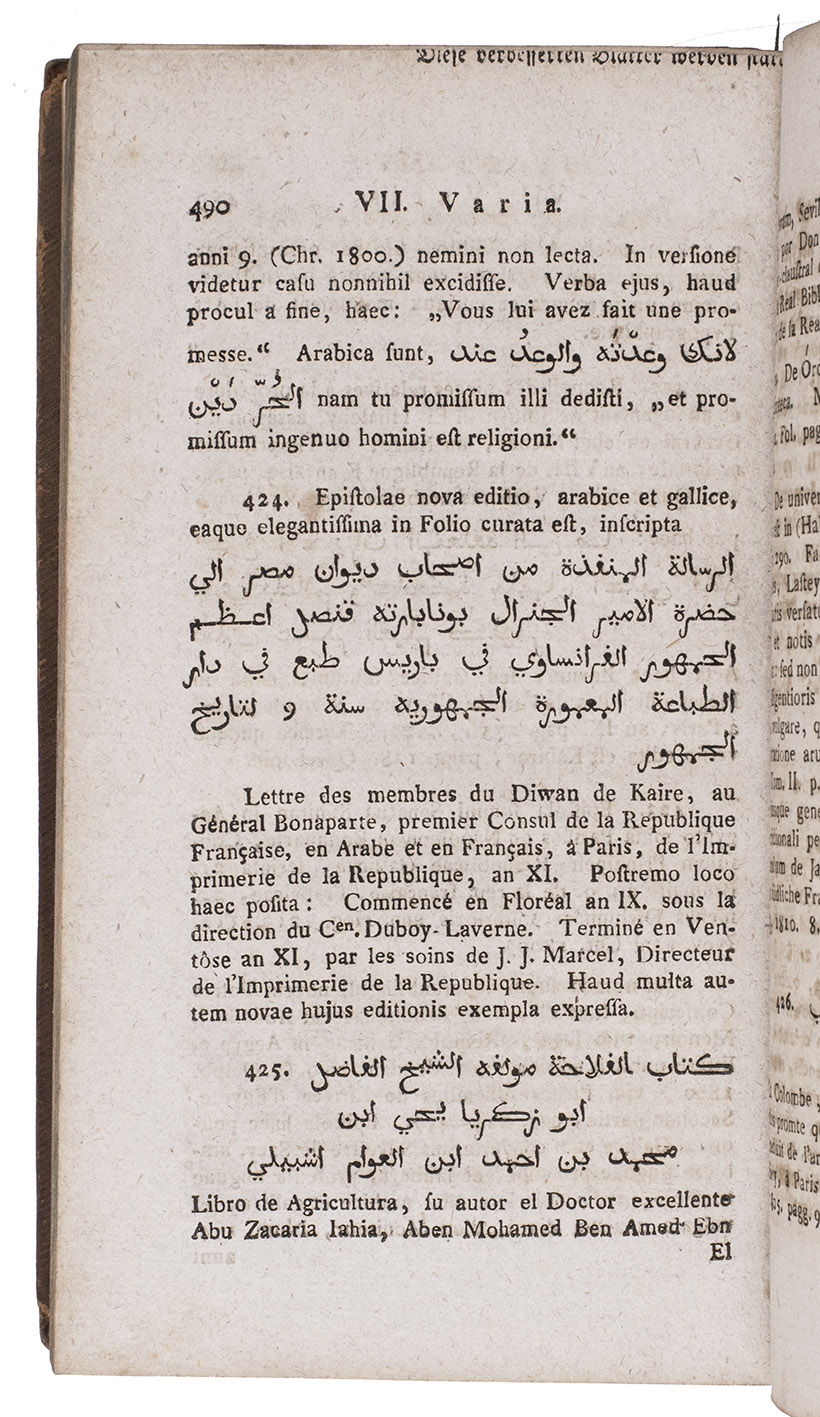 Diese verbesserten Blätter werden
490 VII. Varia.
anni 9. (Chr. 1800.) nemini non lecta. In verſione
videtur caſu nonnihil excidiſſe. Verba ejus, haud
procul a fine, haec: „Vous lui avez fait une pro-
messe.“ Arabica ſunt, لانك وعدته والوعد عند
الحر دين nam tu promiſſum illi dediſti, „et pro-
miſſum ingenuo homini eſt religioni.“
424. Epiſtolae nova editio, arabice et gallice,
eaque elegantiſſima in Folio curata eſt, inſcripta
الرسالة المنفذة من اصحاب ديوان مصر الي
حضرة الامير الجنرال بونابارته قنصل اعظم
الجمهور الفرانساوي في باريس طبع في دار
الطباعة المعمورة الجمهوريه سنة 9 لتاريخ
الجمهور
Lettre des membres du Diwan de Kaire, au
Général Bonaparte, premier Consul de la Republique
Française, en Arabe et en Français, à Paris, de l'Im-
primerie de la Republique, an XI. Poſtremo loco
haec poſita: Commencé en Floréal an IX. sous la
direction du Cen. Duboy-Laverne. Terminé en Ven-
tôse an XI, par les soins de J. J. Marcel, Directeur
de l'Imprimerie de la Republique. Haud multa au-
tem novae hujus editionis exempla expreſſa.
425. كتاب الفلاحة مولفه الشيخ الفاضل
ابو زكريا يحي ابن
محمد بن احمد ابن العوام اشبيلي
Libro de Agricultura, ſu autor el Doctor excellente
Abu Zacaria Iahia, Aben Mohamed Ben Amed Ebn
El
Don
Real
De
Fol. pag
De
et notis
ſed non
Tom. II. p.
1810. 8.
426.
Colombe,
à Paris
pagg.